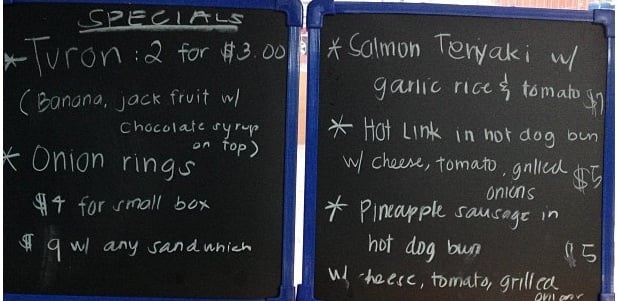 SPECIALS
* Turon : 2 for $3.00
(Banana, jack fruit w/
Chocolate syrup
on top)
* Onion rings
$4 for small box
$9 w/ any sandwhich
* Salmon Teriyaki w/
garlic rice & tomato $7
* Hot Link in hot dog bun
w/ cheese, tomato, grilled $5
onions
* Pineapple sausage in
hot dog bun $5
w/ cheese, tomato, grilled
onions